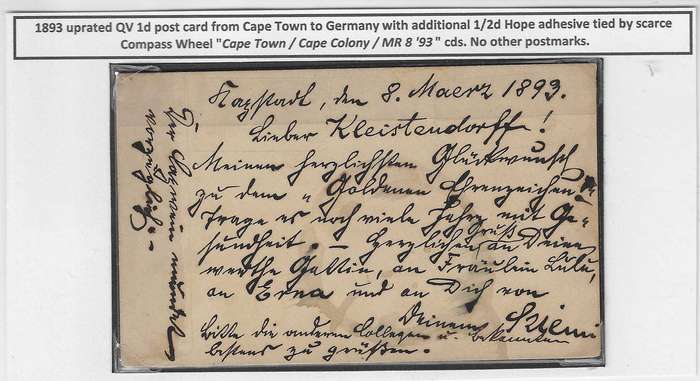 1893 uprated QV 1d post card from Cape Town to Germany with additional 1/2d Hope adhesive tied by scarce
Compass Wheel "Cape Town / Cape Colony / MR 8 '93" cds. No other postmarks.
Kapstadt, den 8. Maerz 1893.
Lieber Kleistendorff!
Meinen herzlichsten Glückwunsch
zu dem „Goldenen Ehrenzeichen".
Trage es noch viele Jahre mit Ge-
sundheit. – Herzlichen Gruß an Deine
werthe Gattin, an Fräulein Lulu,
an Erna und an Dich von
Deinem
Bitte die anderen Collegen u. Bekannten
bestens zu grüßen.
Der Capwein mundet
vorzüglich. –